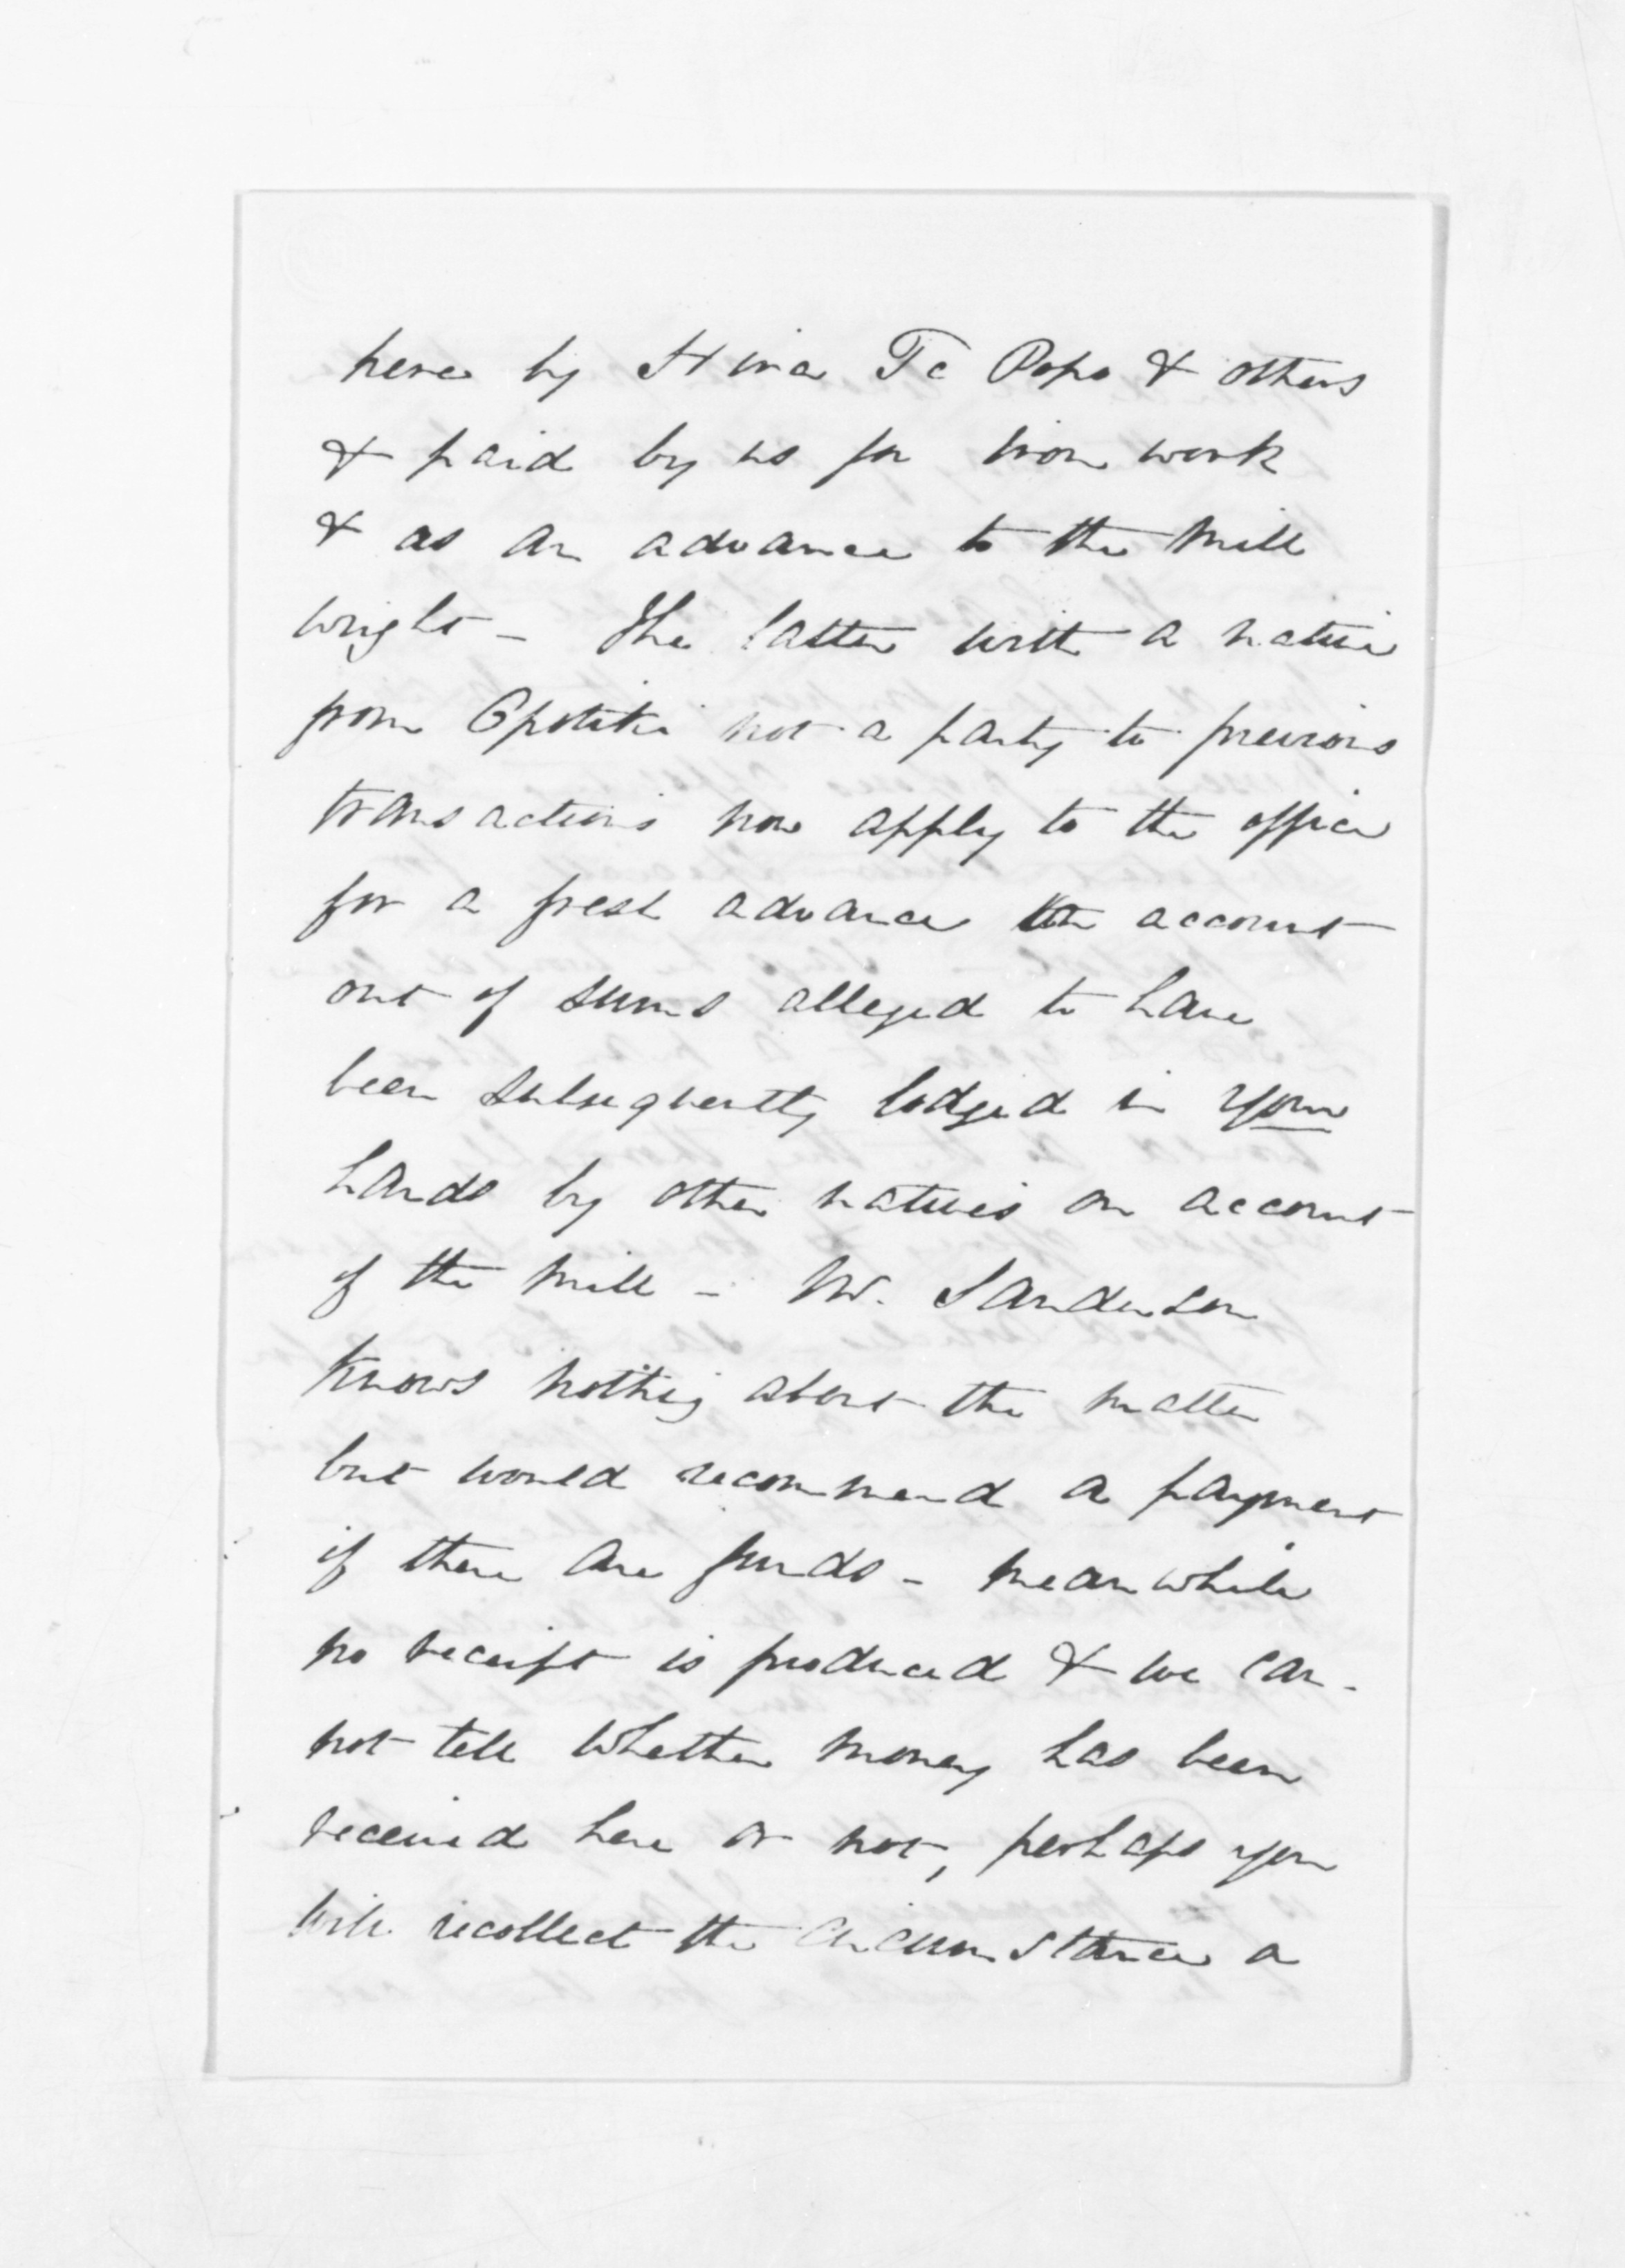 here by Hira Te Popo & others
& paid by us for iron work
& as an advance to the Mill
wright - The latter with a native
from Opotiki not a party to previous
transactions now apply to the office
for a fresh advance on account
out of sums alleged to have
been subsequently lodged in your
hands by other natives on account
of the Mill - Mr. Sanderson
knows nothing about the matter
but would recommend a payment
if there are funds - meanwhile
no receipt is produced & we can-
not tell whether money has been
received here or not, perhaps you
will recollect the circumstance a